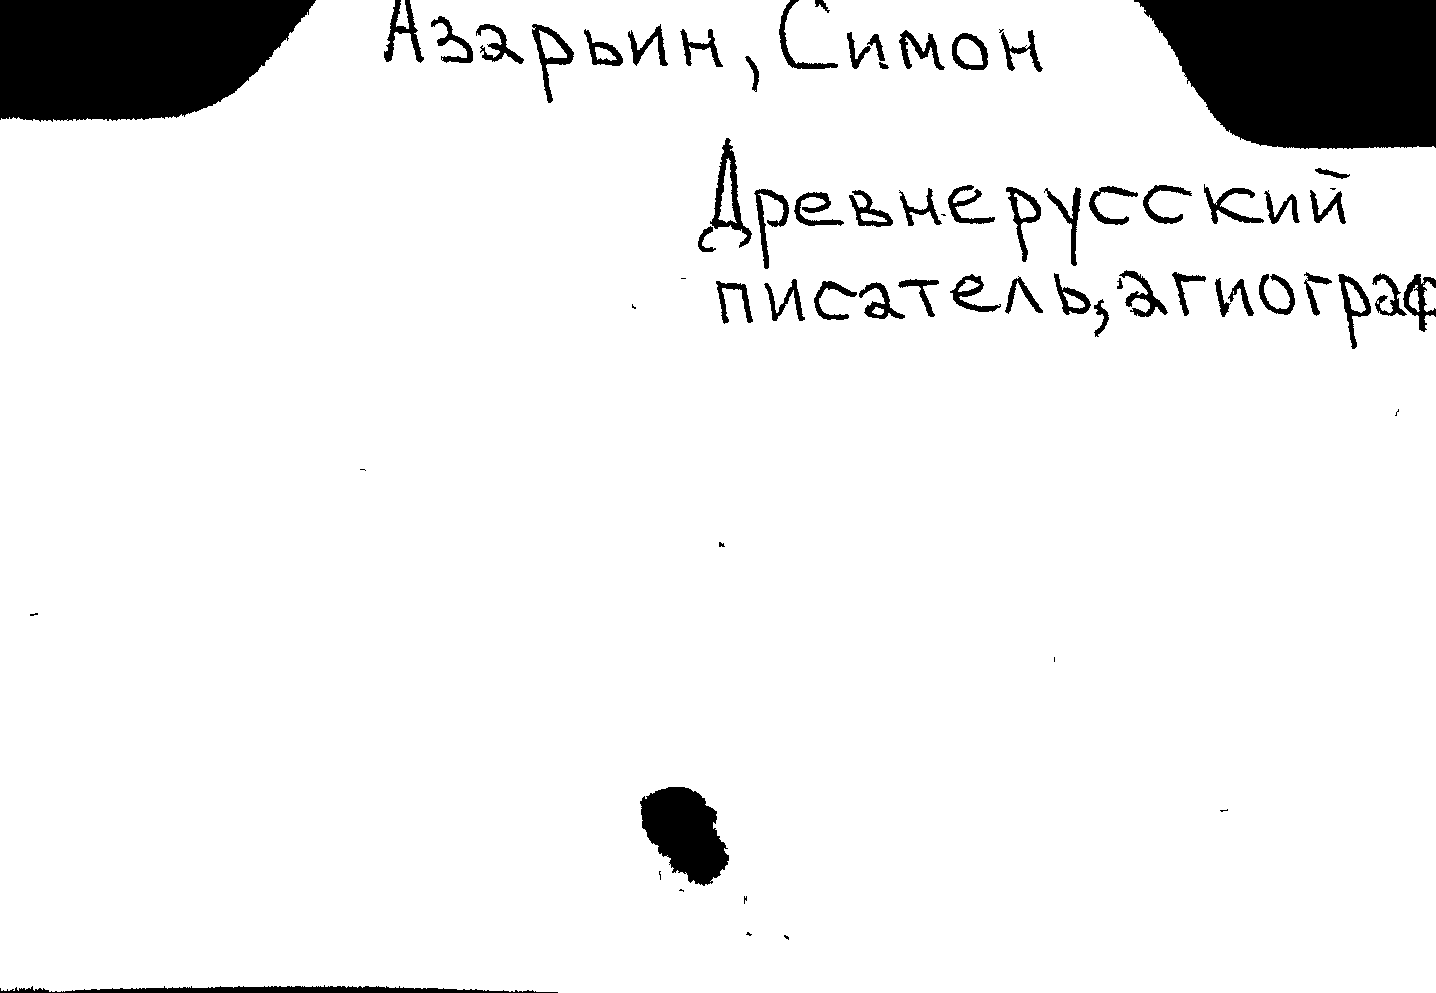 Азарьин, Симон
Древнерусский
писатель, агиограф